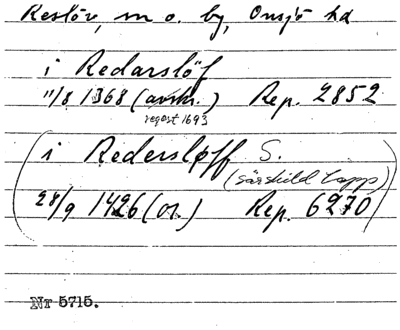 Reslöv, sn o. by, Onsjö hd
i Redarslöf
11/8 1368 (avskr.) Rep. 2852
regest 1693
(i Redersløff S.
(särskild lapp)
28/9 1426 (or.) Rep. 6270)
Nr 5715.